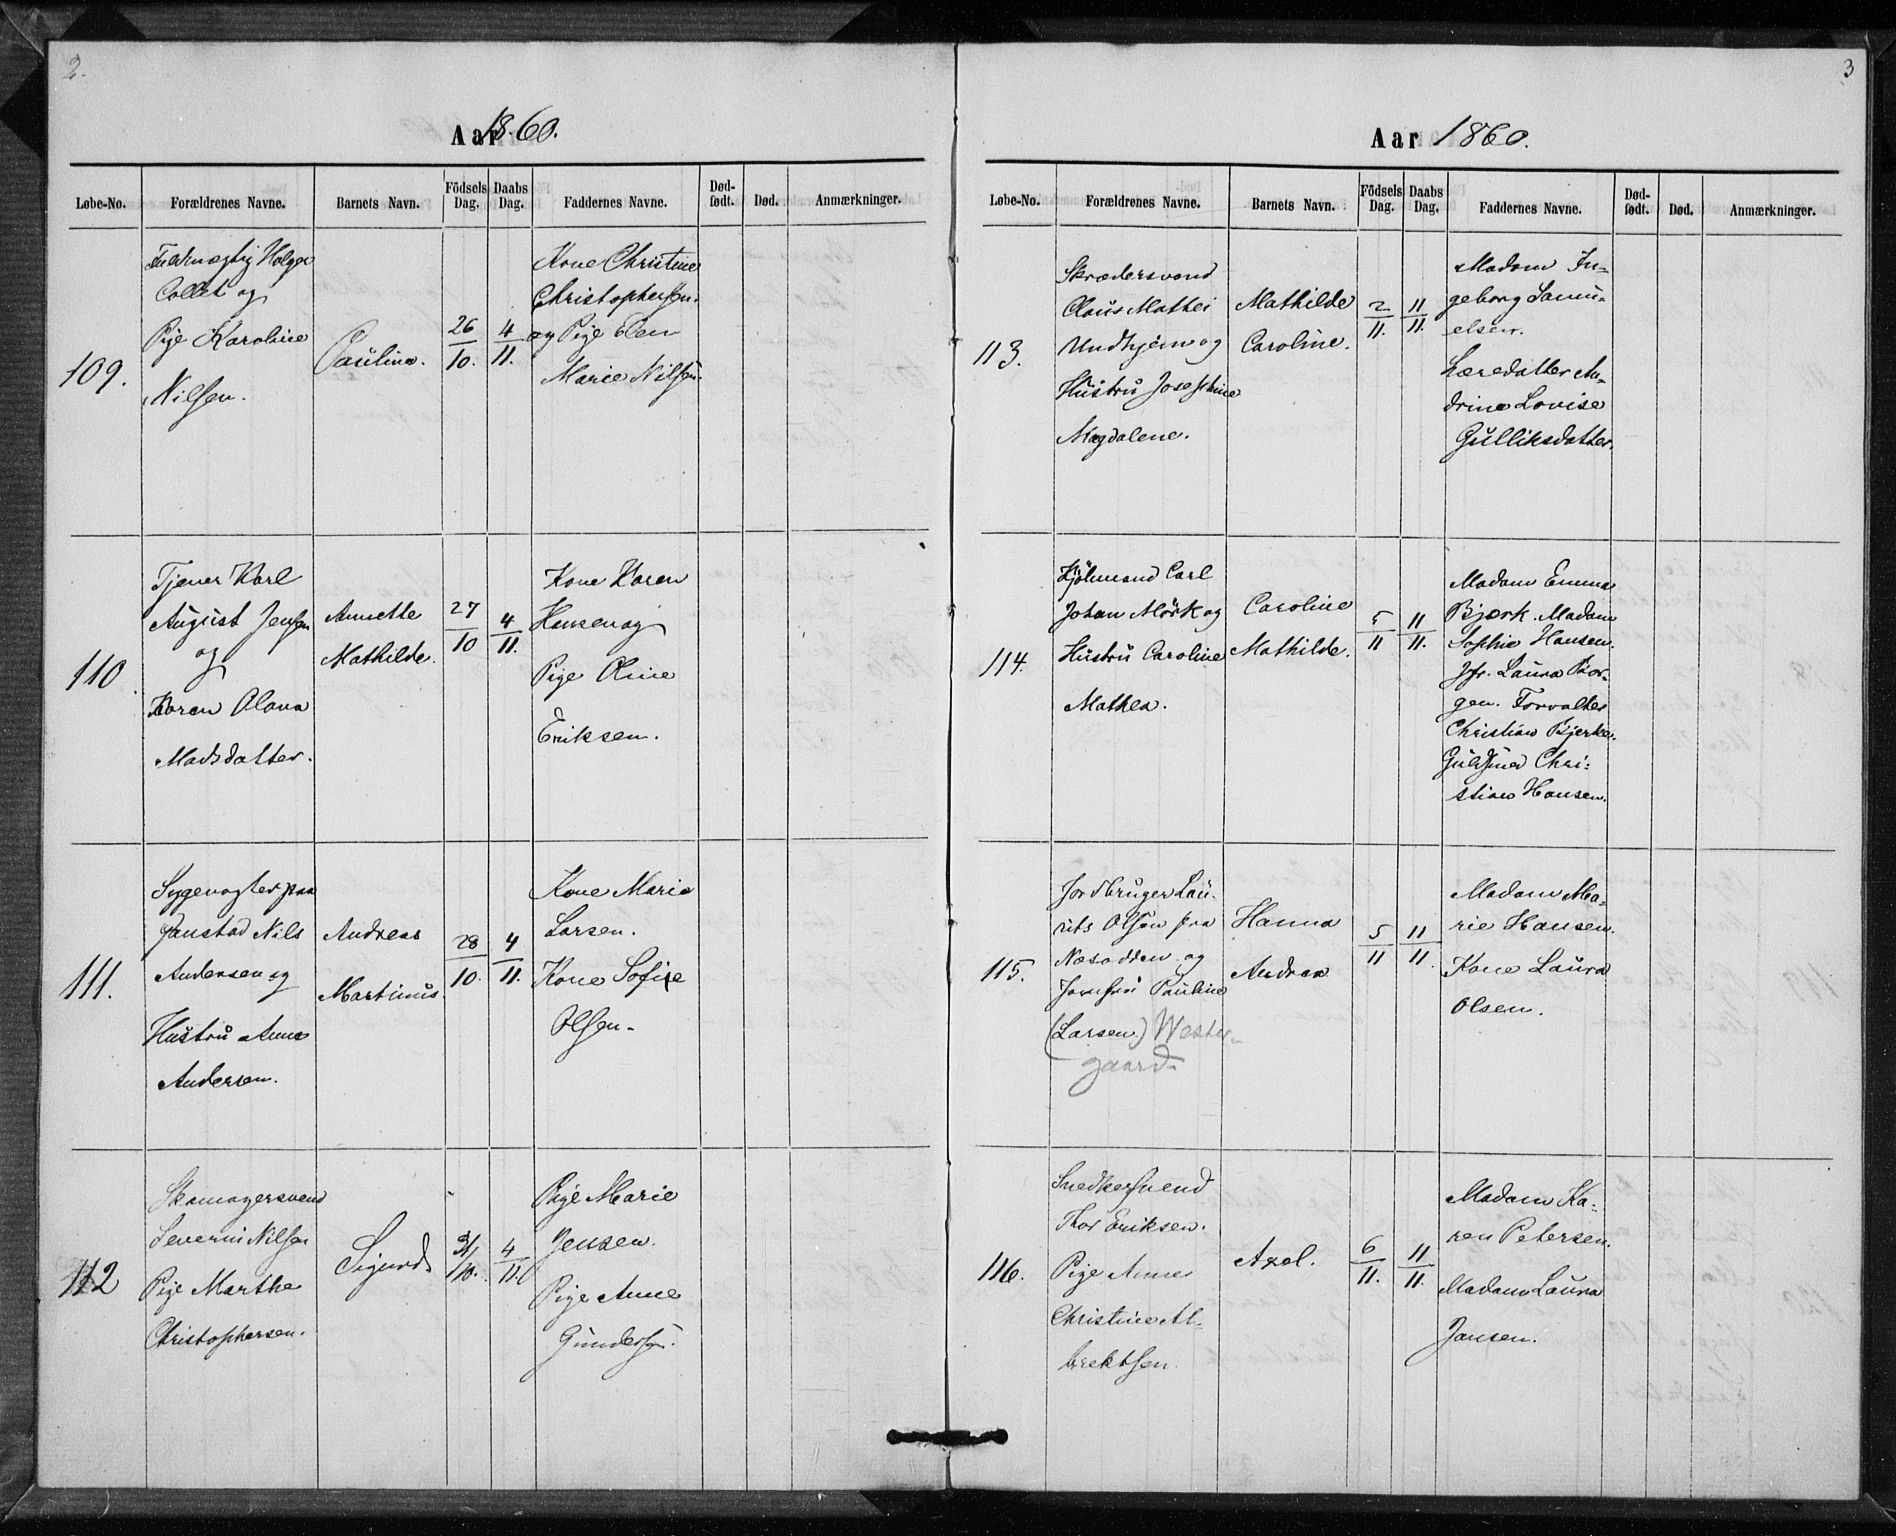 2.
Aar 1860.
Løbe-No. Forældrenes Navne. Barnets Navn. Födsels Dag. Daabs Dag. Faddernes Navne. Død-födt. Død. Anmærkninger.
109.
Fuldmægtig Holger
Collet og
Pige Karoline
Nilsen.
Pauline.
26/10.
4/11.
Kone Christine
Christophersen.
og Pige Elen
Marie Nilsen.
110.
Tjener Karl
August Jensen
og
Karen Olava
Madsdatter.
Annette
Mathilde.
27/10
4/11.
Kone Karen
Hansen og
Pige Oline
Eriksen.
111.
Sygevogter paa
Nils
Andersen og
Hustru Anne
Andersen.
Andreas
Martinus.
28/10.
4/11.
Kone Marie
Larsen.
Kone Sofie
Olsen.
112
Skomagersvend
Severin Nilsen
Pige Marthe
Christophersen.
Sigurd.
31/10.
4/11.
Pige Marie
Jensen.
Pige Anne
Gundersen.
3
Aar 1860.
Løbe-No. Forældrenes Navne. Barnets Navn. Födsels Dag. Daabs Dag. Faddernes Navne. Død-födt. Død. Anmærkninger.
113.
Skrædersvend
Claus Mathei
Undhjem og
Hustru Josephine
Magdalene.
Mathilde
Caroline.
2/11.
11/11.
Madam In-
geborg Samu-
elsen.
Læredatter An-
drine Lovise
Gulliksdatter.
114.
Kjølmand Carl
Johan Mörk og
Hustru Caroline
Mathea.
Caroline
Mathilde.
5/11
11/11.
Madam Emma
Bjærk. Madam
Sophie Hansen.
Jfr. Laura Bor-
gen. Forvalter
Christian Bjerke.
Guldsmed Chri-
stian Hansen.
115.
Jordbruger Lau-
rits Olsen fra
Næsodden og
Jomfru Pauline
(Larsen.) Wester-
gaard
Hanna
Andrea
5/11
11/11.
Madam Ma-
rie Hansen.
Kone Laura
Olsen.
116.
Snedkersvend
Thor Eriksen.
Pige Anne
Christine Al-
brektsen.
Axel.
6/11.
11/11.
Madam Ka-
ren Petersen.
Madam Laura
Jansen.